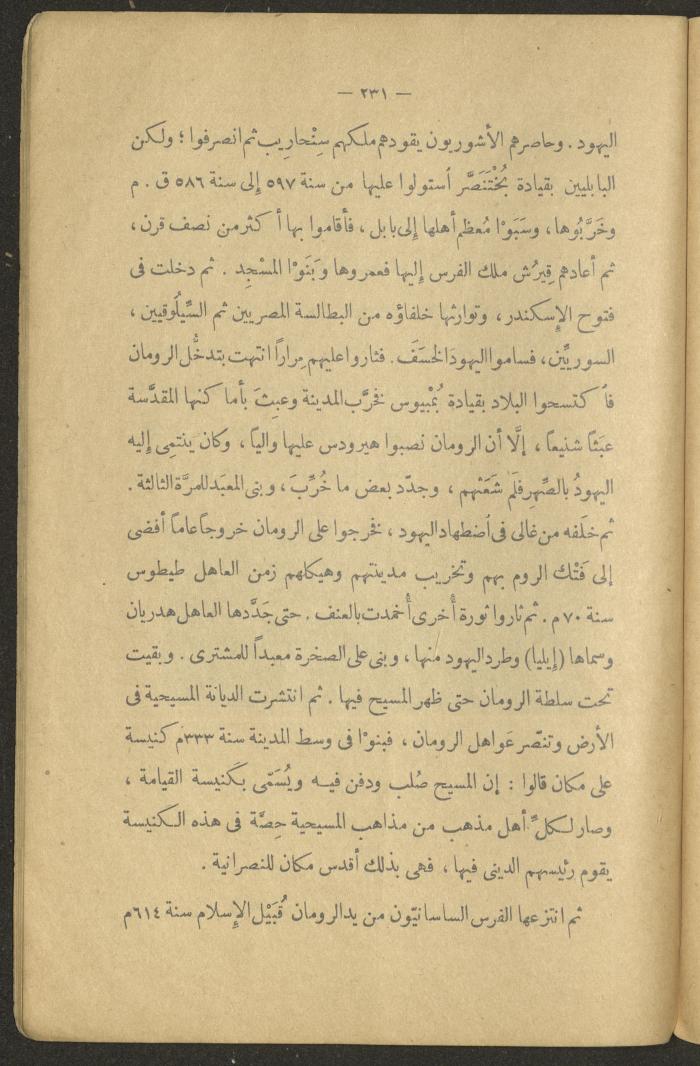 — ٢٣١ —
اليهود . وحاصرهم الأشوريون يقودهم ملكهم سِنْحاريب ثم انصرفوا ؛ ولكن
البابليين بقيادة بُخْتَنَصَّر أستولوا عليها من سنة ٥٩٧ إلى سنة ٥٨٦ ق . م
وخَرَّبُوها ، وسَبَوْا مُعظم أهلها إلى بابل ، فأقاموا بها أكثر من نصف قرن ،
ثم أعادهم قِيرُش ملك الفرس إليها فعمروها وَبَنَوْا المسْجِد . ثم دخلت فى
فتوح الإسكندر ، وتوارثها خلفاؤه من البطالسة المصريين ثم السِّيلُوقيين ،
السوريِّين ، فساموا اليهودَ الخَسَفَ . فثاروا عليهم مِراراً انتهت بتدخُّل الرومان
فأكتسحوا البلاد بقيادة بُمْبيوس فخرَّب المدينة وعبِثَ بأماكنها المقدَّسة
عبَثاً شنيعاً ، إلَّا أن الرومان نصبوا هيرودس عليها والياً ، وكان ينتمِى إليه
اليهودُ بالصِّهرِ فلَمَّ شَعَثهم ، وجدّد بعض ما خُرِّبَ ، وبنى المعبَد للمرَّة الثالثة .
ثم خلَفه من غالى فى أضطهاد اليهود ، فخرجوا على الرومان خروجاً عاماً أفضى
إلى فَتْك الروم بهم وتخريب مدينتهم وهيكلهم زمن العاهل طيطوس
سنة ٧٠ م . ثم ثاروا ثورة أُخرى أُخمدت بالعنف . حتى جَدَّدها العاهل هدريان
وسماها (إيليا) وطرد اليهود منها ، وبنى على الصخرة معبداً للمشترى . وبقيت
تحت سلطة الرومان حتى ظهر المسيح فيها . ثم انتشرت الديانة المسيحية فى
الأرض وتنصّر عَواهل الرومان ، فبنوْا فى وسط المدينة سنة ٣٣٣م كنيسة
على مكان قالوا : إن المسيح صُلب ودفن فيه ويُسَمّى بكَنيسة القيامة ،
وصار لكلِّ أهل مذهب من مذاهب المسيحية حِصَّة فى هذه الكنيسة
يقوم رئيسهم الدينى فيها ، فهى بذلك أقدس مكان للنصرانية .
ثم انتزعها الفرس الساسانيّون من يد الرومان قُبَيْل الإسلام سنة ٦١٤م